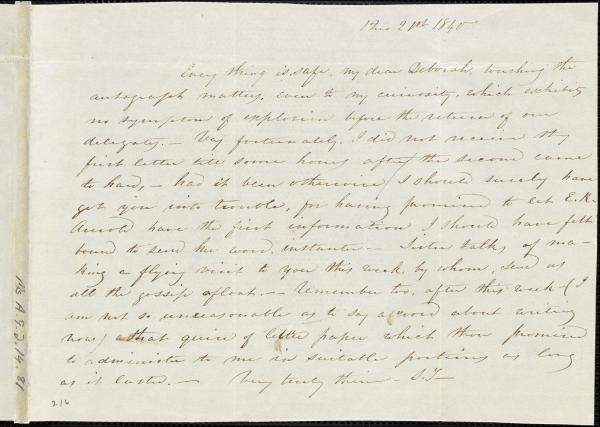 21st 1840
Every thing is safe, my dear Deborah, touching the
autograph matter, even to my curiosity, which exhibits
no symptom of explosion before the return of our
delegates. — Very fortunately, I did not receive thy
first letter till some hours after the second came
to hand, — had it been otherwise, I should surely have
got you into trouble, for having promised to let E. K.
have the first information I should have felt
bound to send her word, instanter — Sister talks of ma-
king a flying visit to you this week, by whom, send us
all the gossip afloat. — Remember too, after this week (I
am not so unreasonable as to say a word about writing
now) that quire of letter paper which thou promised
to administer to me in suitable portions as long
as it lasted. — Very truly thine — S.T—
216
Ms A.9.2